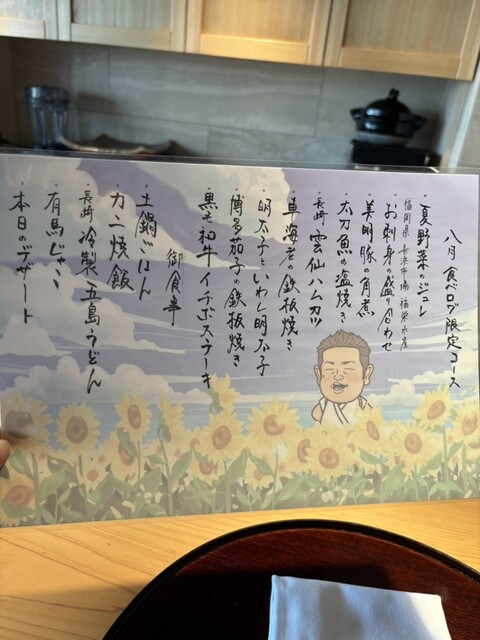 八月 食べログ限定コース
・夏野菜のジュレ
福岡県 長浜市場 福栄水産
・お刺身の盛り合わせ
・美明豚の角煮
・太刀魚の塩焼き
・長崎 雲仙ハムカツ
・車海老の鉄板焼き
・明太子といわし明太子
・博多茄子の鉄板焼き
・黒毛和牛イチボステーキ
御食事
土鍋ごはん
・カニ焼飯
・長崎 冷製 五島うどん
・有馬じゃこ
・本日のデザート